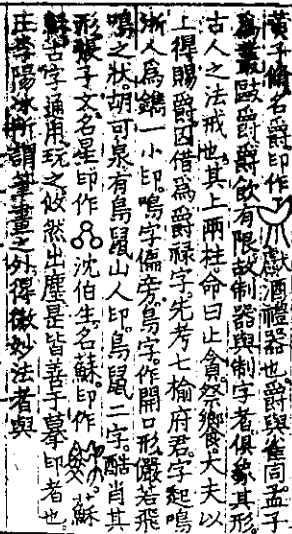 黃子脩名爵印作 獻酒禮器也爵與雀同孟子
爲叢敺爵爵飲有限故制器與制字者俱象其形
古人之法戒也其上兩柱命曰止貪祭饗大夫以
上得賜爵因借爲爵祿字先考七榆府君字起鳴
浙人爲鐫一小印鳴字偏旁鳥字作開口形儼若飛
鳴之狀胡可泉有鳥鼠山人印鳥鼠二字酷肖其
形張子文名星印作 沈伯生名蘇印作 穌
蘇古字通用玩之攸然出塵是皆善于摹印者也
庄李陽冰所謂筆畫之外得微妙法者與